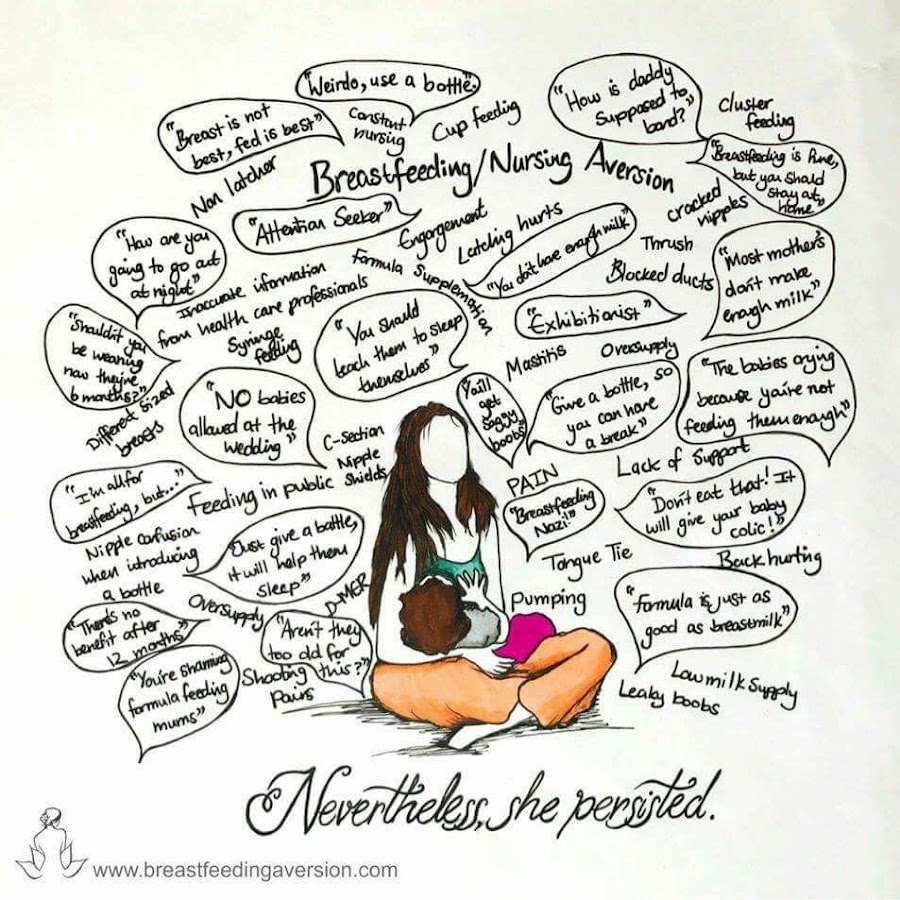 "Weirdo, use a bottle."
"Breast is not
best, fed is best"
Constant
nursing
Cup feeding
"How is daddy
supposed to
bond?"
Cluster
feeding
Non latcher
Breastfeeding/Nursing Aversion
"Breastfeeding is fine,
but you should
stay at
home"
cracked
nipples
"Attention Seeker"
Engorgement
Latching hurts
"You don't have enough milk"
Thrush
Blocked ducts
"How are you
going to go out
at night"
Inaccurate information
from health care professionals
Formula Supplementation
"Most mother's
don't make
enough milk"
"Shouldn't you
be weaning
now they're
6 months?"
Syringe
feeding
"You should
teach them to sleep
themselves"
"Exhibitionist"
Mastitis
Oversupply
Different sized
breasts
"NO babies
allowed at the
wedding"
C-section
Nipple
Shields
You'll
get
saggy
boobs"
"Give a bottle, so
you can have
a break"
"The babies crying
because you're not
feeding them enough"
"I'm all for
breastfeeding, but..."
Feeding in public
PAIN
Lack of Support
"Breastfeeding
Nazi!"
"Don't eat that! It
will give your baby
colic!"
Nipple confusion
when introducing
a bottle
"Just give a bottle,
it will help them
sleep"
D-MER
Tongue Tie
Back hurting
"There's no
benefit after
12 months"
Oversupply
"Aren't they
too old for
this?"
Pumping
"Formula is just as
good as breastmilk"
"You're shaming
formula feeding
mums"
Shooting
Pains
Low milk supply
Leaky boobs
Nevertheless, she persisted.
www.breastfeedingaversion.com